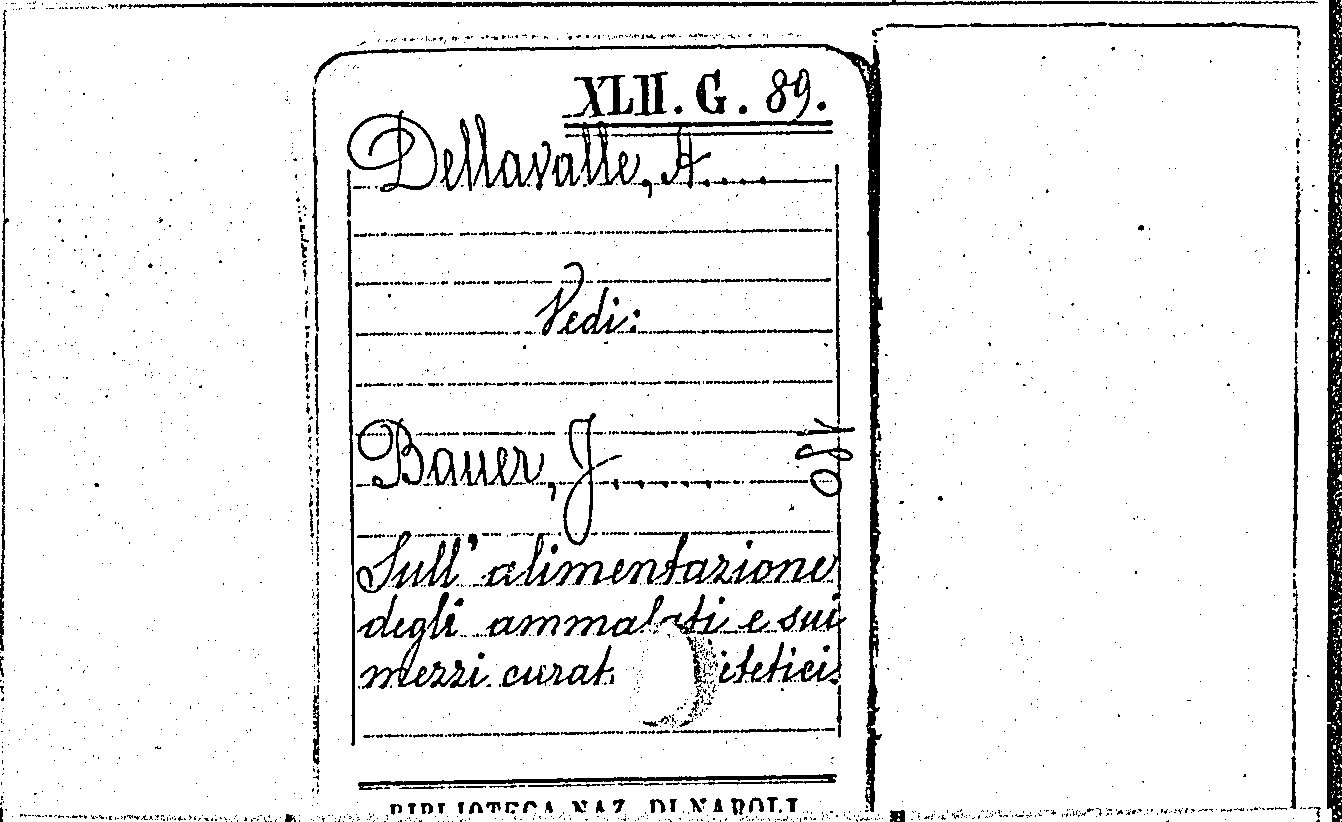 XLII. G. 89.
Dellavalle, A....
Vedi:
Bauer, J......
Sull' alimentazione
degli ammalati e sui
mezzi curat. itetici.
BIBLIOTECA NAZ. DI NAPOLI